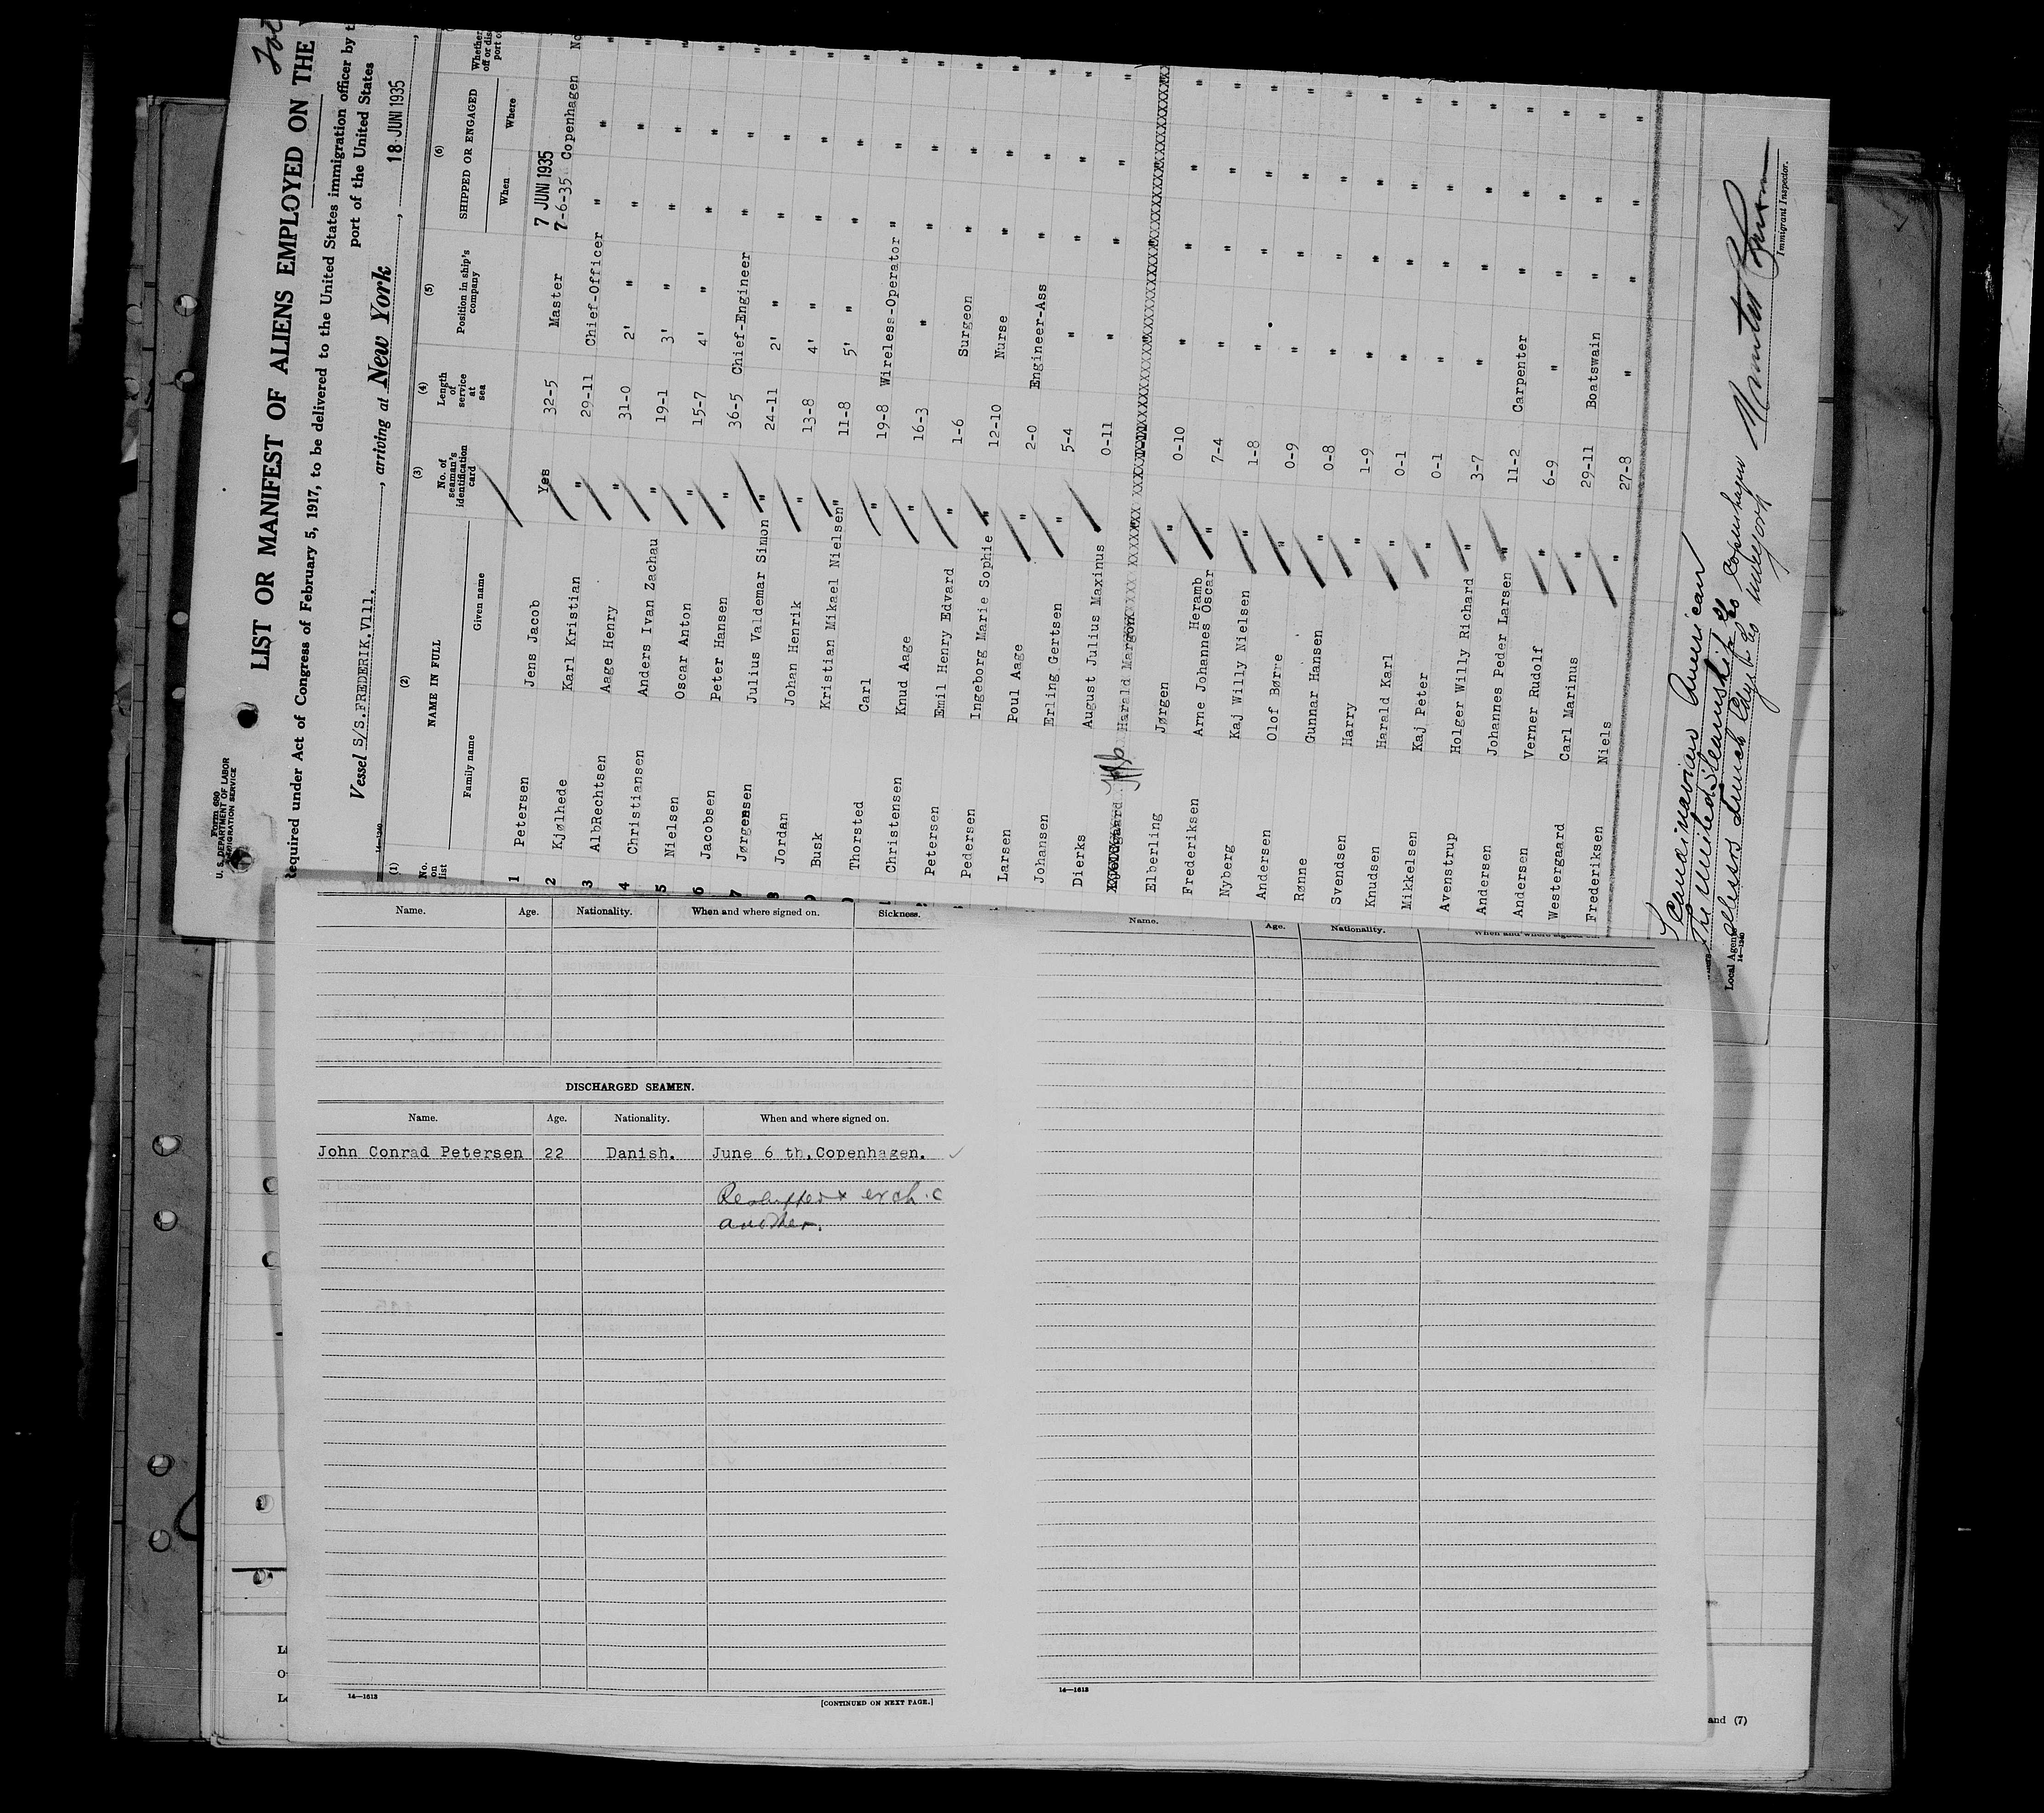 Form 680
U. S. DEPARTMENT OF LABOR
IMMIGRATION SERVICE
LIST OR MANIFEST OF ALIENS EMPLOYED ON THE
Required under Act of Congress of February 5, 1917, to be delivered to the United States immigration officer by
port of the United States
Vessel S/S.FREDERIK.V111., arriving at New York, 18 JUNI 1935,
14—1240
(1) (2) (3) (4) (5) (6)
No. on list NAME IN FULL No. of seaman's identification card Length of service at sea Position in ship's company SHIPPED OR ENGAGED Whether
off or dis
port o
Family name Given name When Where
7 JUNI 1935
1 Petersen Jens Jacob Yes 32-5 Master 7-6-35 Copenhagen No
2 Kjølhede Karl Kristian " 29-11 Chief-Officer " " "
3 AlbRechtsen Aage Henry " 31-0 2' " " " "
4 Christiansen Anders Ivan Zachau " 19-1 3' " " " "
5 Nielsen Oscar Anton " 15-7 4' " " " "
6 Jacobsen Peter Hansen " 36-5 Chief-Engineer " " "
7 Jørgensen Julius Valdemar Simon " 24-11 2' " " " "
8 Jordan Johan Henrik " 13-8 4' " " " "
Busk Kristian Mikael Nielsen " 11-8 5' " " " "
Thorsted Carl " 19-8 Wireless-Operator " " "
Christensen Knud Aage " 16-3 " " " "
Petersen Emil Henry Edvard " 1-6 Surgeon " " "
Pedersen Ingeborg Marie Sophie " 12-10 Nurse " " "
Larsen Poul Aage " 2-0 Engineer-Ass " " "
Johansen Erling Gertsen " 5-4 " " " "
Dierks August Julius Maximus 0-11 " " " "
Harald
Elberling Jørgen " 0-10 " " " "
Heramb
Frederiksen Arne Johannes Oscar " 7-4 " " " "
Nyberg Kaj Willy Nielsen " 1-8 " " " "
Andersen Olof Børre " 0-9 " " " "
Rønne Gunnar Hansen " 0-8 " " " "
Svendsen Harry " 1-9 " " " "
Knudsen Harald Karl " 0-1 " " " "
Mikkelsen Kaj Peter " 0-1 " " " "
Avenstrup Holger Willy Richard " 3-7 " " " "
Andersen Johannes Peder Larsen " 11-2 Carpenter " " "
Andersen Verner Rudolf " 6-9 " " " "
Westergaard Carl Marinus " 29-11 Boatswain " " "
Frederiksen Niels " 27-8 " " " "
Scandinavian American
The United Steamship Co Copenhagen
Local Agents
14—1240
Immigrant Inspector.
Name. Age. Nationality. When and where signed on. Sickness.
DISCHARGED SEAMEN.
Name. Age. Nationality. When and where signed on.
John Conrad Petersen 22 Danish. June 6 th. Copenhagen.
another.
14—1613
[CONTINUED ON NEXT PAGE.]
Name. Age. Nationality. When and where signed on.
14—1613
and (7)